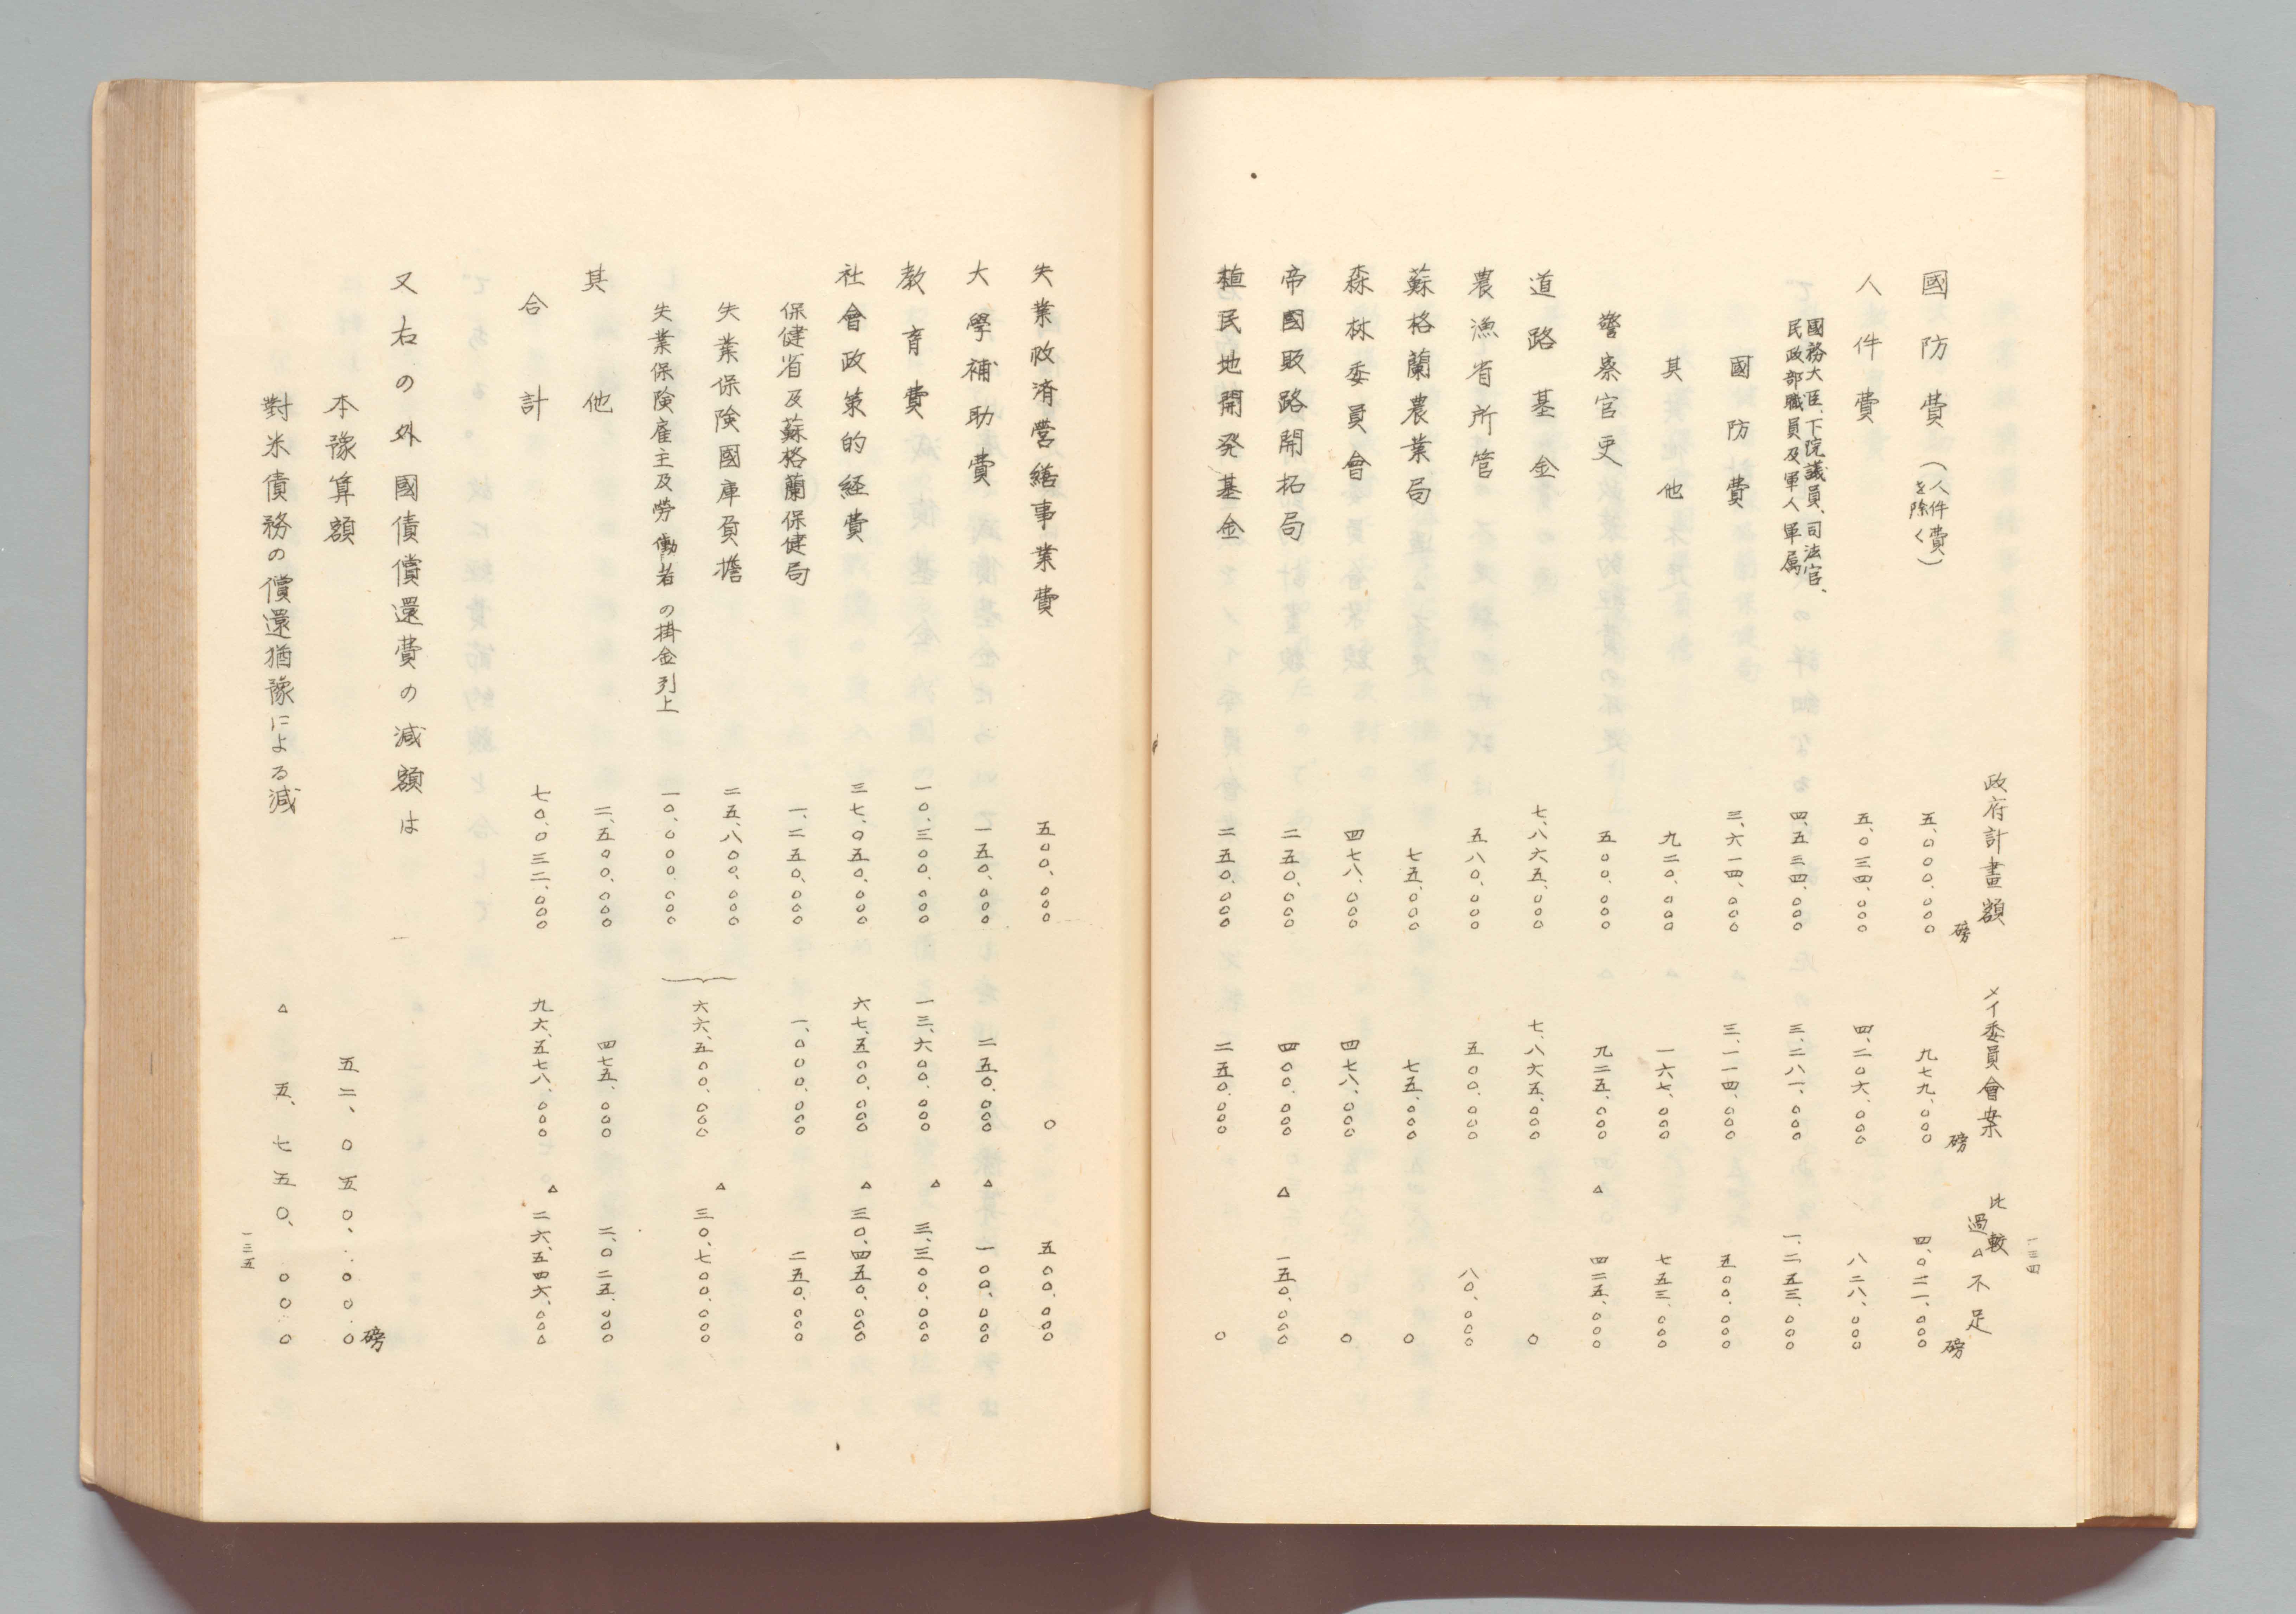 一三四
政府計畫額 メイ委員會案 比較 過△不足
磅 磅 磅
國防費(人件費を除く) 五、〇〇〇、〇〇〇 九七九、〇〇〇 四、〇二一、〇〇〇
人件費 五、〇三四、〇〇〇 四、二〇六、〇〇〇 八二八、〇〇〇
國務大臣、下院議員、司法官、
民政部職員及軍人軍属 四、五三四、〇〇〇 三、二八一、〇〇〇 一、二五三、〇〇〇
國防費 三、六一四、〇〇〇 三、一一四、〇〇〇 五〇〇、〇〇〇
其他 九二〇、〇〇〇 一六七、〇〇〇 七五三、〇〇〇
警察官吏 五〇〇、〇〇〇 九二五、〇〇〇 △ 四二五、〇〇〇
道路基金 七、八六五、〇〇〇 七、八六五、〇〇〇 〇
農漁省所管 五八〇、〇〇〇 五〇〇、〇〇〇 八〇、〇〇〇
蘇格蘭農業局 七五、〇〇〇 七五、〇〇〇 〇
森林委員會 四七八、〇〇〇 四七八、〇〇〇 〇
帝國販路開拓局 二五〇、〇〇〇 四〇〇、〇〇〇 △ 一五〇、〇〇〇
植民地開発基金 二五〇、〇〇〇 二五〇、〇〇〇 〇
失業救済営繕事業費 五〇〇、〇〇〇 〇 五〇〇、〇〇〇
大學補助費 一五〇、〇〇〇 二五〇、〇〇〇 △ 一〇〇、〇〇〇
教育費 一〇、三〇〇、〇〇〇 一三、六〇〇、〇〇〇 △ 三、三〇〇、〇〇〇
社會政策的経費 三七、〇五〇、〇〇〇 六七、五〇〇、〇〇〇 △ 三〇、四五〇、〇〇〇
保健省及蘇格蘭保健局 一、二五〇、〇〇〇 一、〇〇〇、〇〇〇 二五〇、〇〇〇
失業保険國庫負擔 二五、八〇〇、〇〇〇
失業保険雇主及勞働者の掛金引上 一〇、〇〇〇、〇〇〇 六六、五〇〇、〇〇〇 △ 三〇、七〇〇、〇〇〇
其他 二、五〇〇、〇〇〇 四七五、〇〇〇 二、〇二五、〇〇〇
合計 七〇、〇三二、〇〇〇 九六、五七八、〇〇〇 △ 二六、五四六、〇〇〇
又右の外國債償還費の減額は
磅
本豫算額 五二、〇五〇、〇〇〇
對米債務の償還猶豫による減 △ 五、七五〇、〇〇〇
一三五